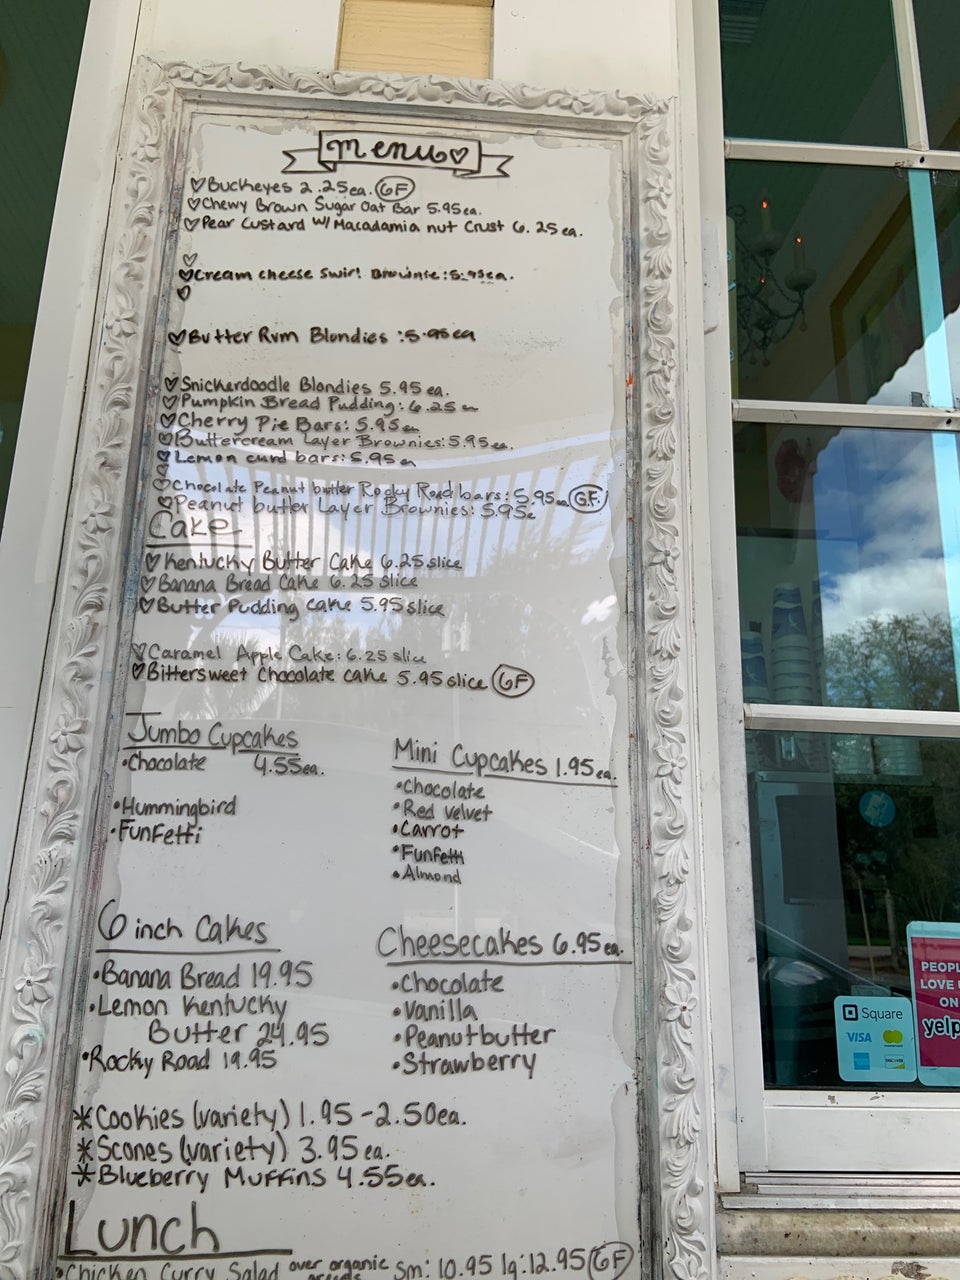 menu
Buckeyes 2.25ea. GF
Chewy Brown Sugar Oat Bar 5.95ea.
Pear Custard W/ Macadamia nut Crust 6.25ea.
Cream cheese Swirl Brownie: 5.95ea.
Butter Rum Blondies : 5.95ea
Snickerdoodle Blondies 5.95 ea.
Pumpkin Bread Pudding: 6.25ea
Cherry Pie Bars: 5.95ea
Buttercream Layer Brownies: 5.95ea.
Lemon curd bars: 5.95ea
Chocolate Peanut butter Rocky Road bars: 5.95ea GF
Peanut butter Layer Brownies: 5.95e
Cake
Kentucky Butter Cake 6.25 slice
Banana Bread Cake 6.25 slice
Butter Pudding cake 5.95 slice
Caramel Apple Cake: 6.25 slice
Bittersweet Chocolate cake 5.95 slice GF
Jumbo Cupcakes
•Chocolate 4.55ea.
•Hummingbird
•Funfetti
Mini Cupcakes 1.95ea.
•Chocolate
•Red velvet
•Carrot
•Funfetti
•Almond
6 inch Cakes
•Banana Bread 19.95
•Lemon Kentucky
Butter 24.95
•Rocky Road 19.95
Cheesecakes 6.95ea.
•Chocolate
•Vanilla
•Peanutbutter
•Strawberry
*Cookies (variety) 1.95 - 2.50ea.
*Scones (variety) 3.95 ea.
*Blueberry Muffins 4.55ea.
Lunch
•Chicken Curry Salad over organic greens Sm: 10.95 lg: 12.95 GF
Square
VISA
mastercard
DISCOVER
PEOPL
LOVE U
ON
yelp